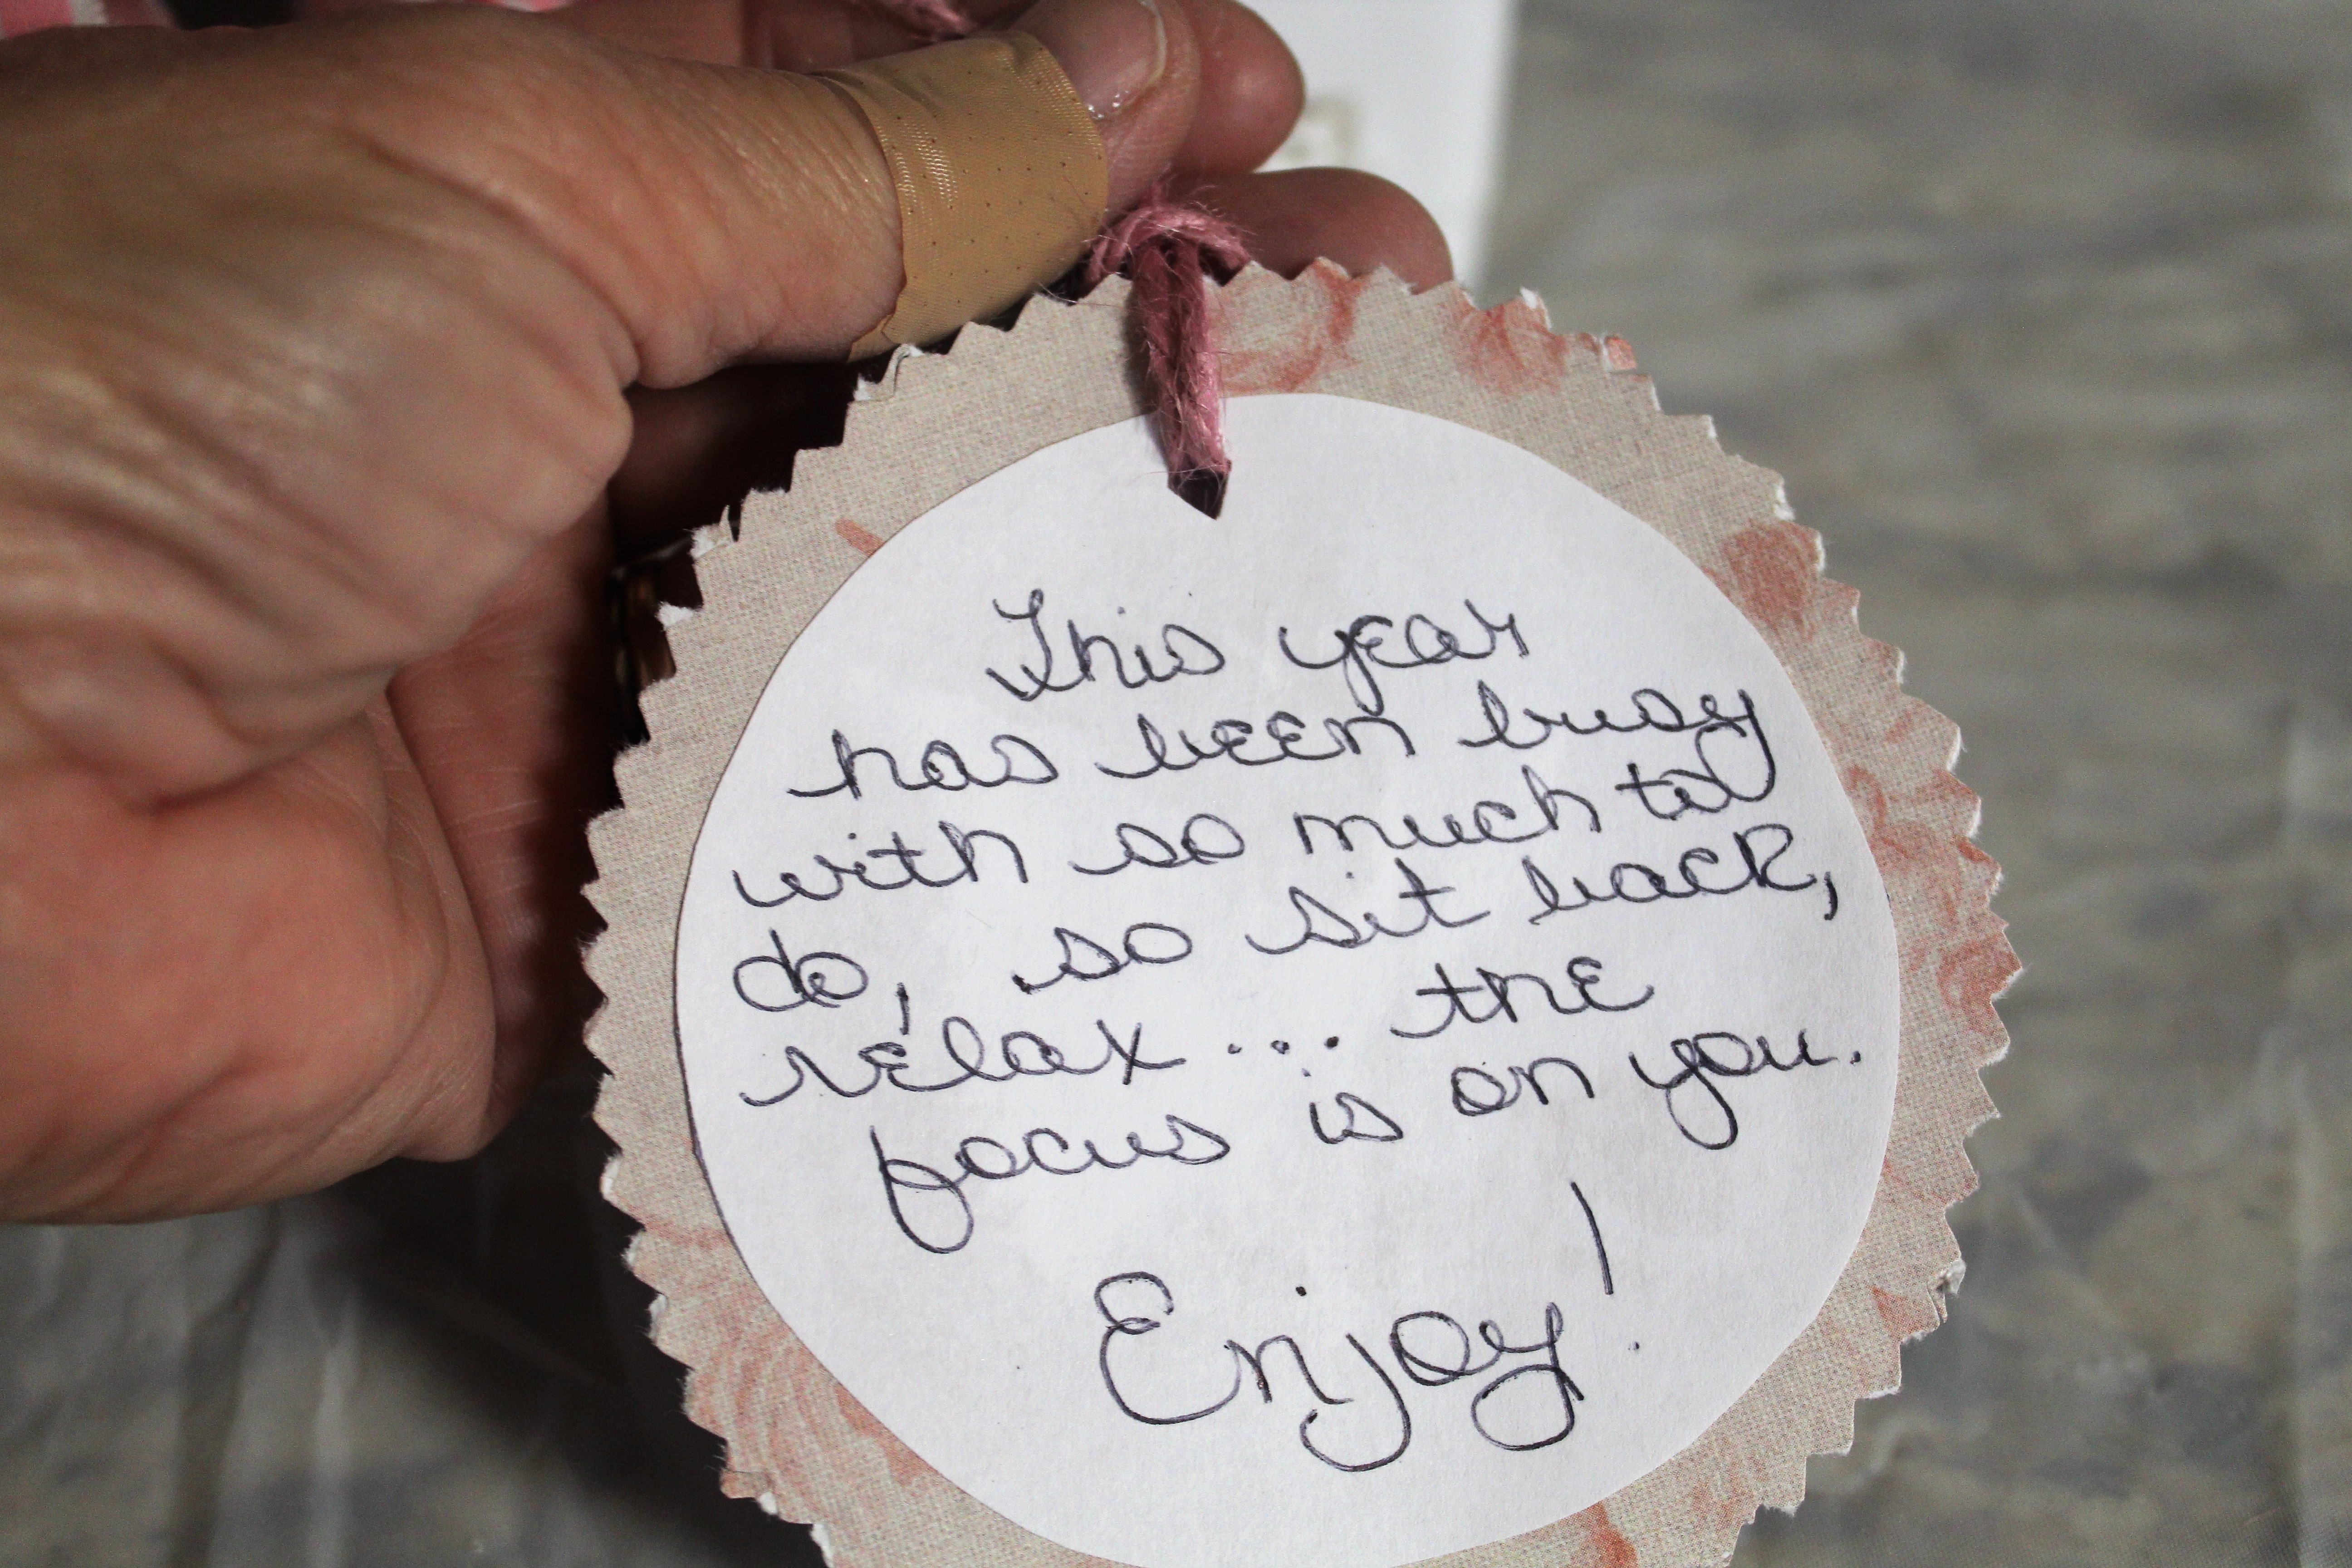 This year
has been busy
with so much to
do, so sit back,
relax... the
focus is on you.
Enjoy!